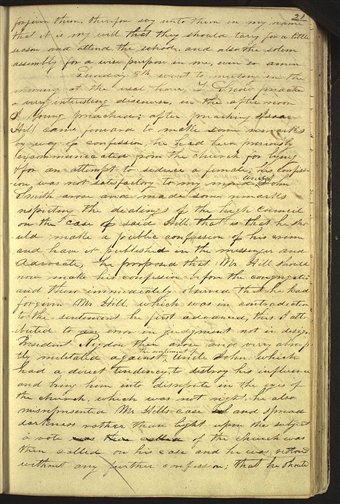 21
forgive them, therefore say unto them in my name
that it is my will that they should tarry for a little
season and attend the school, and also the solem
assembly for a wise purpose in me, even so amen
Sunday 8th went to meeting in the
morning at the usual hour, Z. Coltrin preached
a very interesting discourse, in the after noon
J. Young preached; after preaching Isaac
Hill came forward to make some remarks
by way of confession, he had been previously
excommunicated from the church for lying
& for an attempt to seduce a female; his confes-
ion was not satisfactory to my mind Uncle John
Smith arose and made some remarks
respecting the dealings of the high council
on the case of said Hill, that is that he sho-
uld make a public confession of his crime
and have it published in the messenger and
Advocate, he proposed that Mr Hill should
now make his confession before the congregation
and then immediately observed that he had
forgiven Mr Hill which was in contradiction
to the sentiment he first advanced, this I att-
ributed to an error in judgment not in design
President Rigdon then arose and very abrup-
tly militated against the sentiment of Uncle John, which
had a direct tendency to destroy his influence
and bring him into disrepute in the eyes of
the church, which was not right, he also
misrepresented Mr Hills case and spread
darkness rather than light upon the subject
a vote of the church was
then called on his case and he was restored
without any further confession; that he should